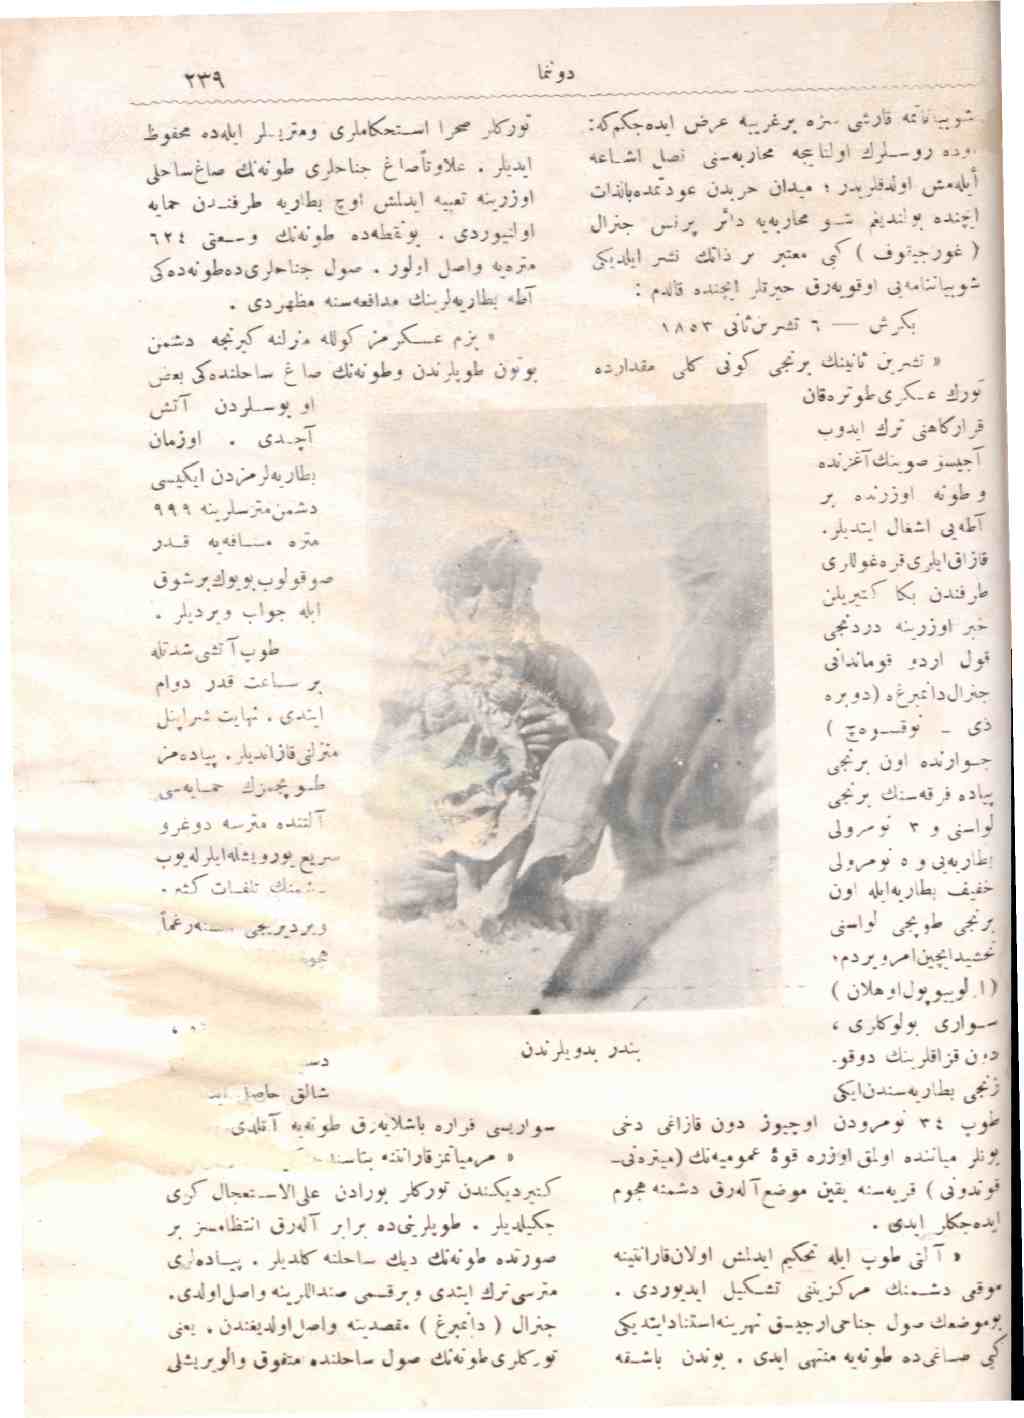 دوننما
٢٣٩
شوبیاناتمه قارشی سزه برغریبه عرض ایده‌جکم‌که:
روسلرك اولتانیچه محاربه‌سنی نصل اشاعه
ایله‌مش اولدقلریدر ؛ میدان حربدن عودتمده‌بالذات
ایچنده بولندیغم شو محاربه‌یه دائر پرنس جنرال
( غورچیقوف ) کبی معتبر بر ذاتك نشر ایلدیکی
شوبیاننامه‌یی اوقویه‌رق حیرتلر ایچنده قالدم :
بکرش — ٦ تشرین‌ثانی ١٨٥٣
« تشرین ثانینك برنجی کونی کلی مقدارده
تورك عسکری‌طوترەقان
قرارکاهنی ترك ایدوب
آجیسز صوینك‌آغزنده
و طونه اوزرنده بر
آطه‌یی اشغال ایتدیلر.
قازاق‌ایلری‌قره‌غوللری
طرفندن بکا کتیریلن
خبر اوزرینه دردنجی
قول اردو قوماندانی
جنرال‌دانمبرغه (دوبره
ذی - نوقسوه‌چ )
جوارنده اون برنجی
پیاده فرقه‌سنك برنجی
لواسنی و ٣ نومرولی
بطاریه‌یی و ٥ نومرولی
خفیف بطاریه‌ایله اون
برنجی طوپجی لواسنی
تحشیدایچین‌امرویردم؛
سواری بولوکلری ،
دون قزاقلرینك دوقو-
زنجی بطاریه‌سندن‌ایکی
طوپ ٣٤ نومرودن اوچیوز دون قازاغی دخی
بونلر میاننده اولمق‌اوزره قوهٔ عمومیه‌نك (میتره‌نی-
قوندونی ) قریه‌سنه یقین موضع‌آله‌رق دشمنه هجوم
ایده‌جکلر ایدی .
« آلتی طوپ ایله تحکیم ایدلمش اولان‌قارانتینه
موقعی دشمنك مرکزیتنی تشکیل ایدیوردی .
بوموضعك صول جناحی‌ارجیسق نهرینه‌استنادایتدیکی
کبی صاغی‌ده طونه‌یه منتهی ایدی . بوندن باشقه
تورکلر صحرا استحکاملری ومتریسلر ایله‌ده محفوظ
ایدیلر . علاوةً‌صاغ جناحلری طونه‌نك صاغ‌ساحلی
اوزرینه تعبیه ایدلمش اوچ بطاریه طرفندن حمایه
اولنیوردی . بونقطه‌ده طونه‌نك وسعتی ٦٢٤
متره‌یه واصل اولور . صول جناحلری‌ده‌طونه‌ده‌کی
آطه بطاریه‌لرینك مدافعه‌سنه مظهردی .
« بزم عسکرمز کولله منزلنه کیرنجه دشمن
بوتون طوپلرندن وطونه‌نك صاغ ساحلنده‌کی بعض
او بوسلردن آتش
آچدی . اوزمان
بطاریه‌لرمزدن ایکیسی
دشمن‌متریسلرینه ٩٩٩
متره مسافه‌یه قدر
صوقولوب‌بویوك‌برشوق
ایله جواب ویردیلر .
طوپ‌آتشی‌شدتله
بر ساعت قدر دوام
ایتدی . نهایت شراپنل
منزلنی‌قازاندیلر. پیاده‌من
طوپجیمزك حمایه‌سی
آلتنده مترسه دوغرو
سریع‌یورویشله‌ایلرله‌یوب
دشمنك تلفات کثیره
ویردیریجی
شالق حاصل
سواریسی فراره باشلایه‌رق طونه‌یه آتلدی
کتیردیکندن تورکلر بورادن علی‌الاستعجال کری
چکیلدیلر . طوپلرینی‌ده برابر آله‌رق انتظامسز بر
صورتده طونه‌نك دیك ساحلنه کلدیلر . پیاده‌لری
مترسی‌ترك ایتدی و برقسمی صنداللرینه واصل‌اولدی.
جنرال ( دانمبرغ ) مقصدینه واصل‌اولدیغندن . یعنی
تورکلری‌طونه‌نك صول ساحلنده متفوق والویریشلی
بندر بدویلرندن